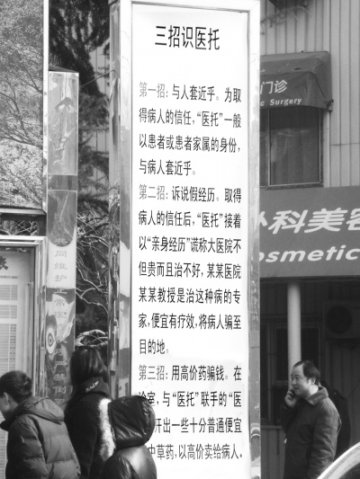 三招识医托
第一招：与人套近乎。为取
得病人的信任，“医托”一般
以患者或患者家属的身份，
与病人套近乎。
第二招：诉说假经历。取得
病人的信任后，“医托”接着
以“亲身经历”谎称大医院不
但贵而且治不好，某某医院
某某教授是治这种病的专
家，便宜有疗效，将病人骗至
目的地。
第三招：用高价药骗钱。在
诊室，与“医托”联手的“医
开出一些十分普通便宜
中草药，以高价卖给病人，
门诊
c Surgery
外科美容
osmetic